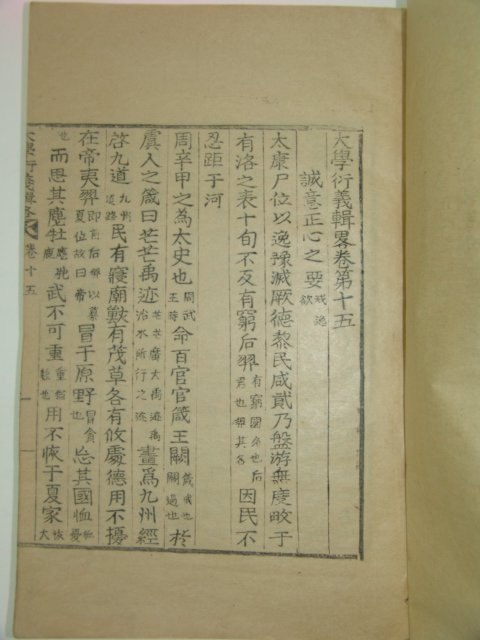 大學衍義輯畧卷第十五
誠意正心之要戒逸欲
太康尸位以逸豫滅厥德黎民咸貳乃盤游無度畋于
有洛之表十旬不反有窮后羿有窮國名也后君也羿其名因民不
忍距于河
周辛甲之爲太史也周武王時命百官官箴王闕箴戒也闕過也於
虞人之箴曰芒芒禹迹芒芒廣大禹迹禹治水所行之迹畫爲九州經
啓九道九州道路民有寢廟獸有茂草各有攸處德用不擾
在帝夷羿即有后羿以簒夏位故曰帝冒于原野冒貪也忘其國恤恤憂
也而思其麀牡麀牝鹿武不可重重猶數也用不恢于夏家恢大
大學衍義輯畧 卷十五